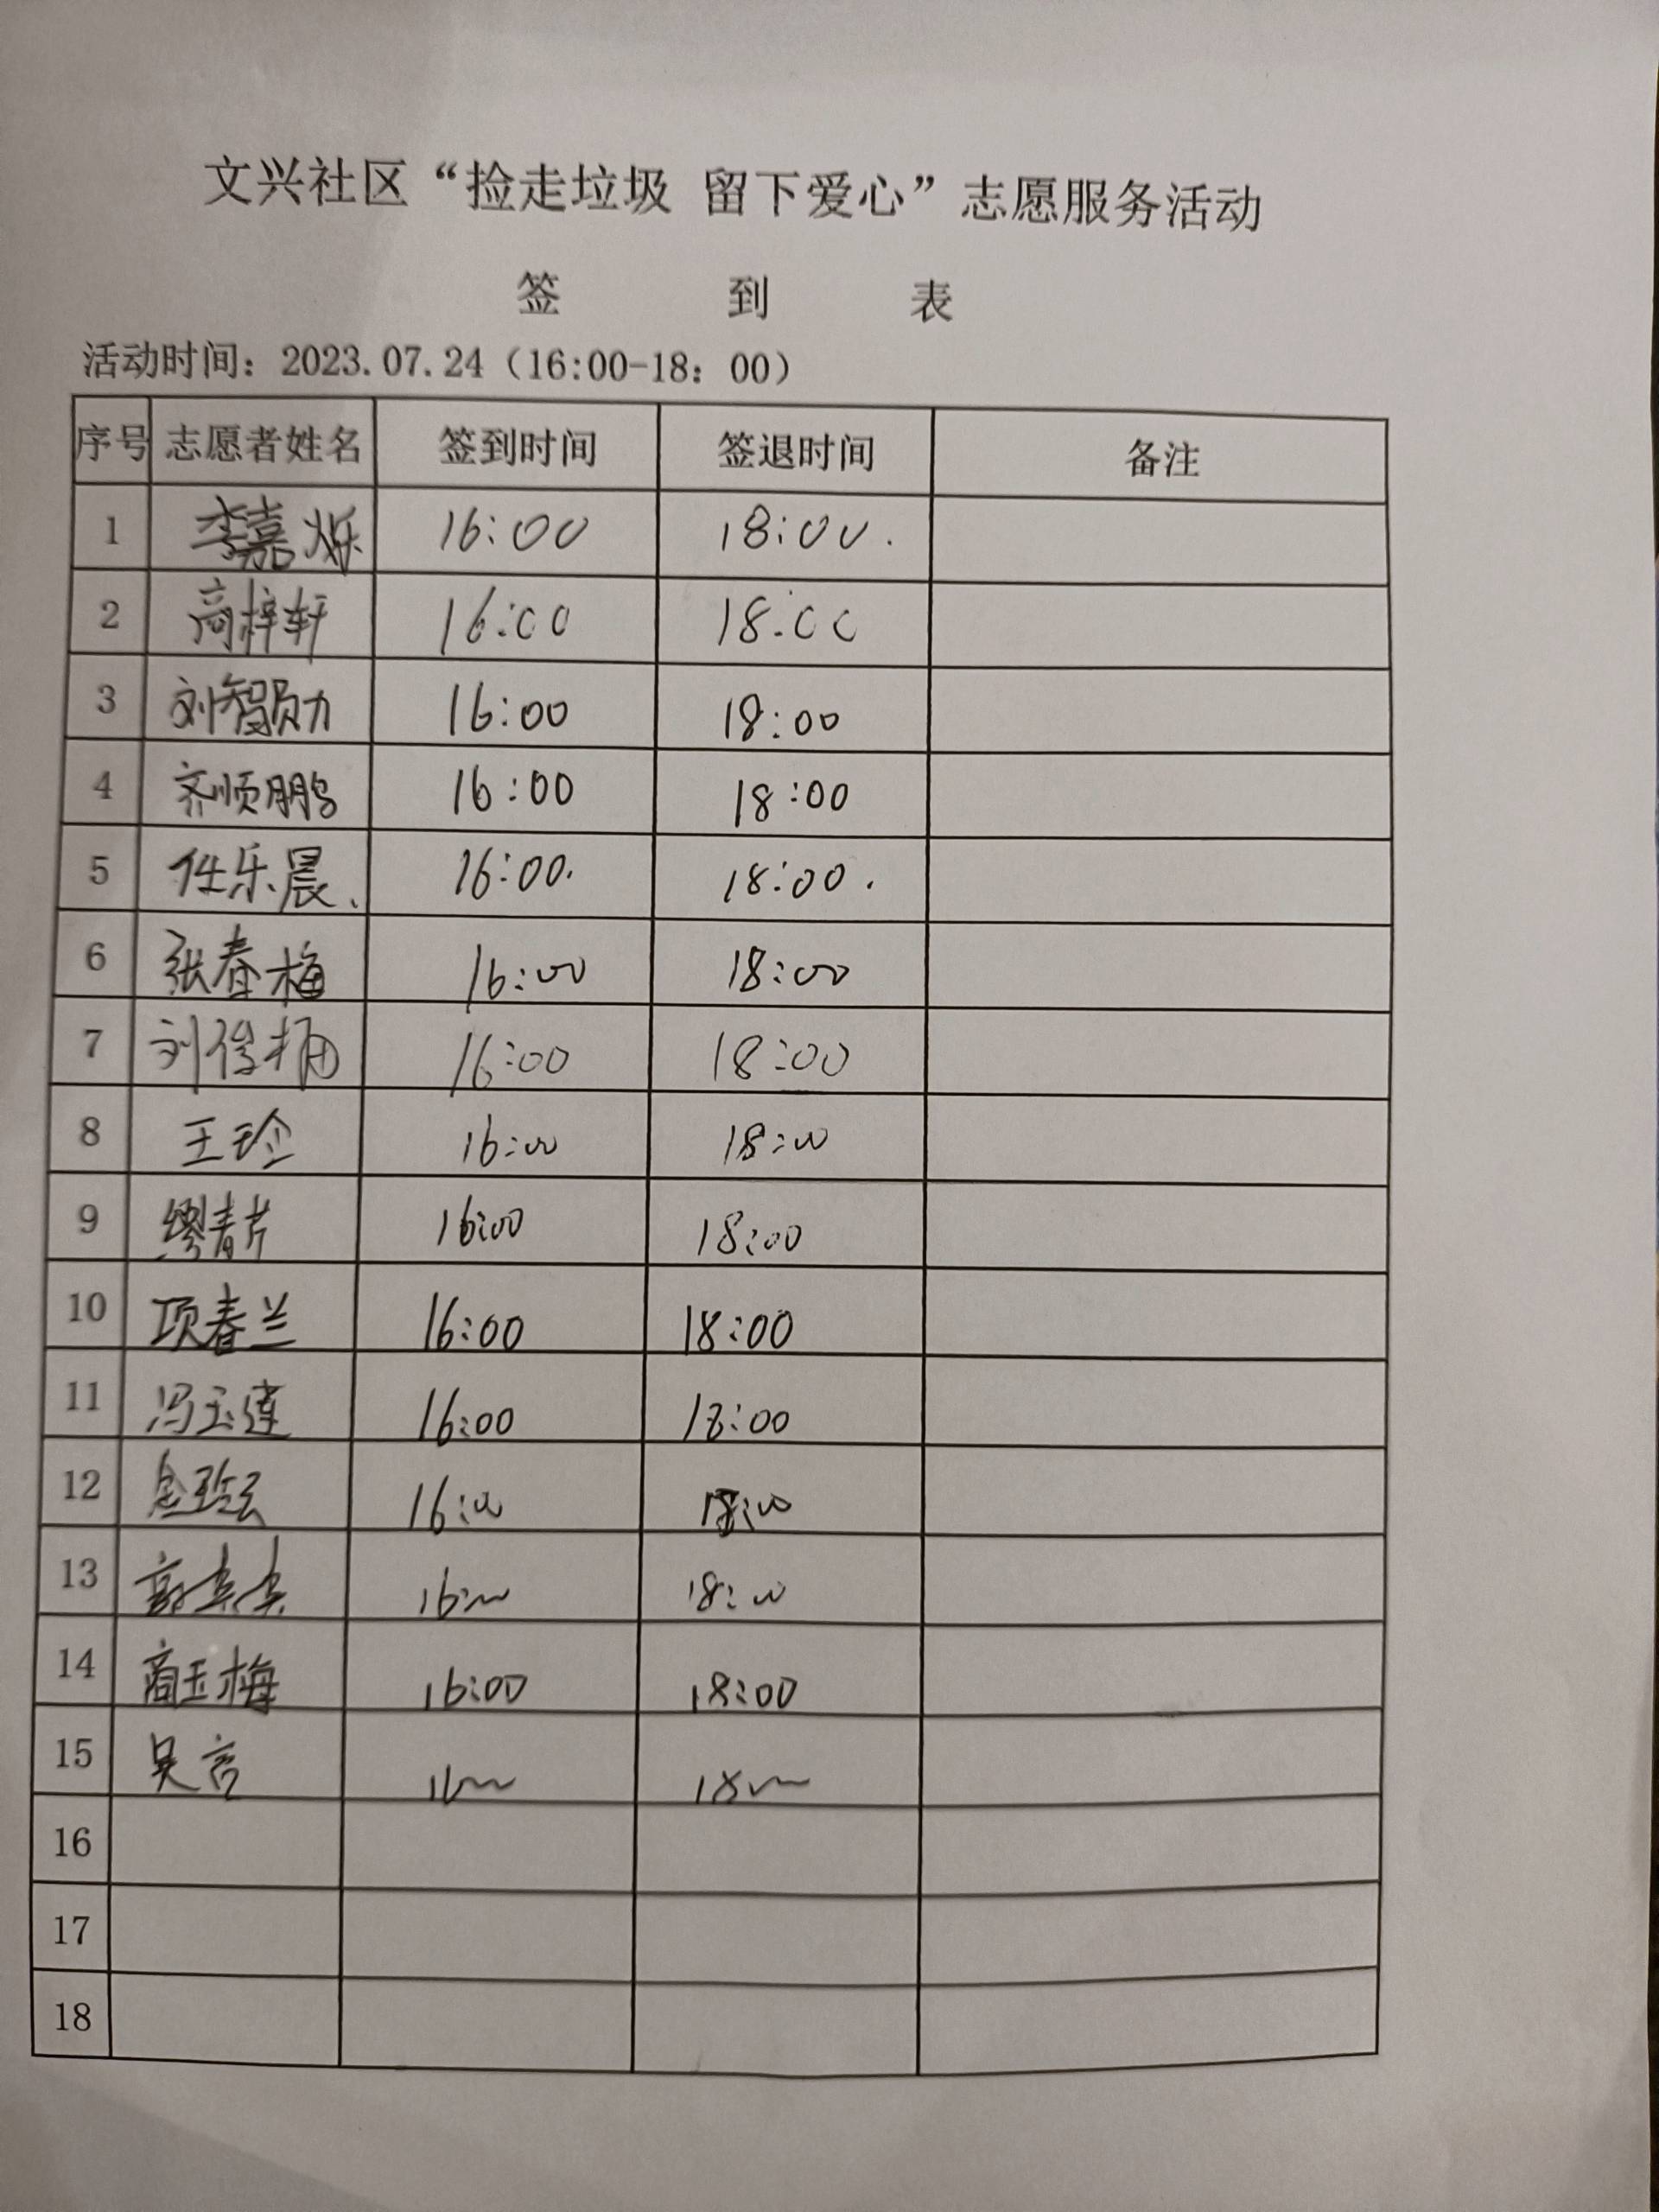 文兴社区“捡走垃圾 留下爱心”志愿服务活动
签 到 表
活动时间：2023.07.24（16:00-18：00）
序号 志愿者姓名 签到时间 签退时间 备注
1 李嘉烁 16:00 18:00.
2 高梓轩 16:00 18:00
3 刘智勋 16:00 18:00
4 齐顺鹏 16:00 18:00
5 任乐晨、 16:00. 18:00.
6 张春梅 16:00 18:00
7 刘俊 16:00 18:00
8 王珍 16:00 18:00
9 缪青芳 16:00 18:00
10 项春兰 16:00 18:00
11 冯玉莲 16:00 18:00
12 16:00 18:00
13 16:00 18:00
14 商玉梅 16:00 18:00
15 吴言 16 18
16
17
18